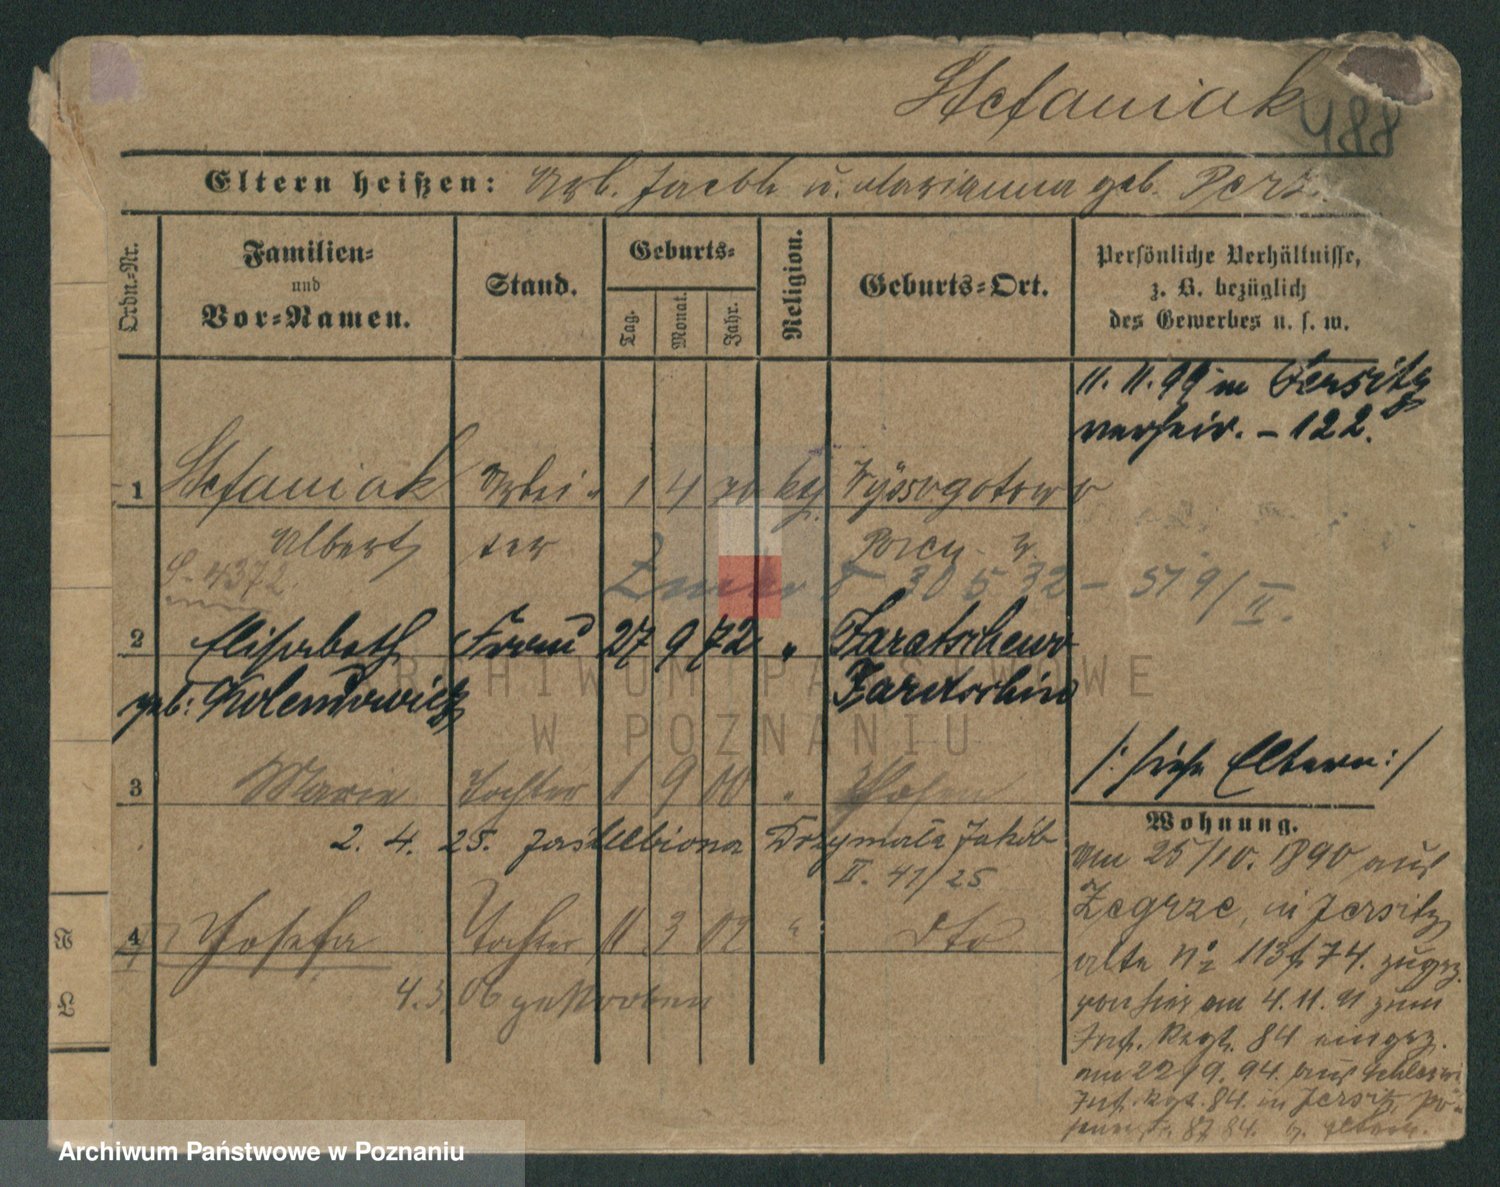 Stefaniak
488
Eltern heißen: Arb. Jacob u. Marianna geb.
Ordn.-Nr.
Familien-
und
Vor-Namen.
Stand.
Geburts-
Tag.
Monat.
Jahr.
Religion.
Geburts-Ort.
Persönliche Verhältnisse,
z. B. bezüglich
des Gewerbes u. s. w.
11. 11. 99 in Jersitz
verheir. - 122.
1 Stefaniak Arbei- 1 4 70 kth. Wysogotowo
Albert ter Posen W.
S. 4372
30 5 32 - 519/II.
2 Elisabeth Frau 27 9 72 " Zaretschewo
geb: Kolendowicz
3 Marie Tochter 1 9 00 " Posen
/: siehe Eltern :/
2. 4. 25. zaślubiona Drzymała Jakób
II. 41/25
Wohnung.
4 Josefa Tochter 11 3 02 " dto
4. 3. 06 gestorben
am 25/10. 1890 aus
Zegrze, in Jersitz
alte No 113 f 74. zugez.
von hier am 4. 11. 91 zum
Inf. Regt. 84 eingez.
am 22/9. 94. aus Schlesw.
Inf. Rgt. 84. in Jersitz, Po-
ARCHIWUM PAŃSTWOWE
W POZNANIU
Archiwum Państwowe w Poznaniu